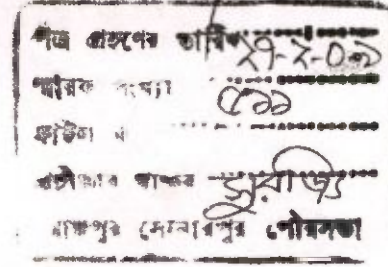 পত্র গ্রহণের তারিখ ২৭-২-০৯
স্মারক সংখ্যা
ফাইল নং
গ্রহীতার স্বাক্ষর সুরজিৎ
রাজপুর সোনারপুর পৌরসভা